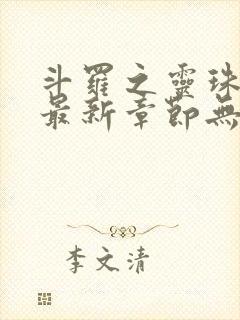 斗羅之靈珠
最新章節無
李文清